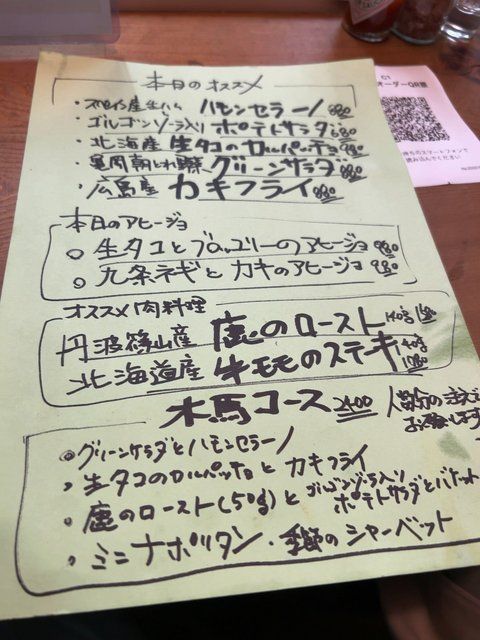 本日のオススメ
・スペイン産生ハム ハモンセラーノ 980
・ゴルゴンゾーラ入り ポテトサラダ 680
・北海産 生タコのカルパッチョ 980
・亀岡朝とれ野菜 グリーンサラダ 880
・広島産 カキフライ
本日のアヒージョ
○ 生タコとブロッコリーのアヒージョ 980
○ 九条ネギとカキのアヒージョ 980
オススメ肉料理
丹波篠山産 鹿のロースト
北海道産 牛モモのステキ
木馬コース 2400 人数分の注文で
お願いします
グリーンサラダとハモンセラーノ
生タコのカルパッチョとカキフライ
鹿のロースト(50g)とゴルゴンゾーラ入り
ポテトサラダとバケット
ミニナポリタン・季節のシャーベット
オーダーQR票
読み込んでください